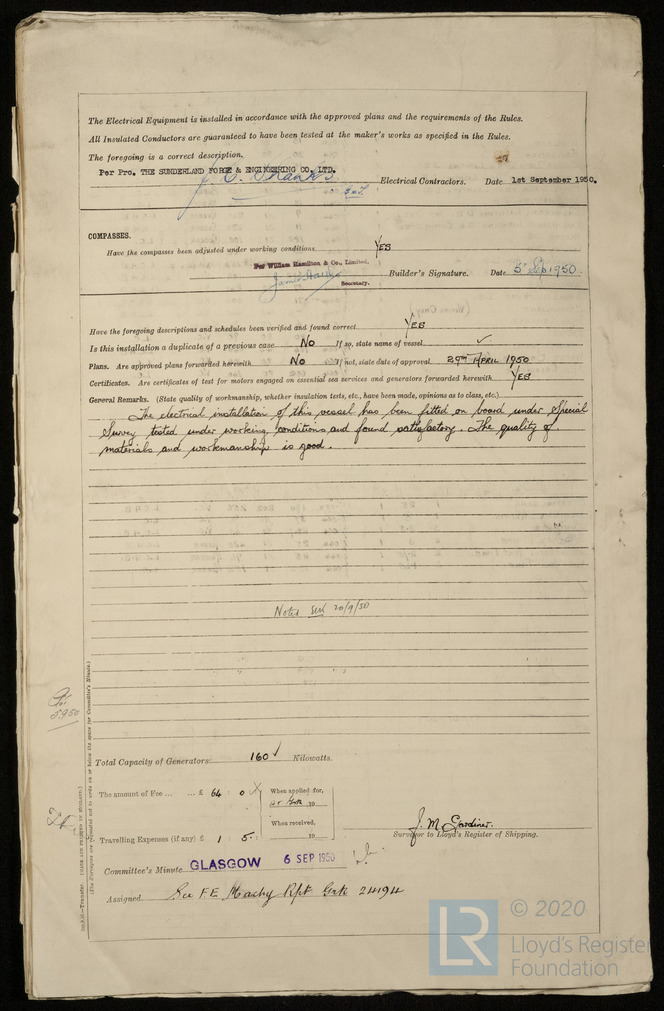 The Electrical Equipment is installed in accordance with the approved plans and the requirements of the Rules.
All Insulated Conductors are guaranteed to have been tested at the maker's works as specified in the Rules.
The foregoing is a correct description.
Per Pro. THE SUNDERLAND FORGE & ENGINEERING CO. LTD.
Electrical Contractors. Date 1st September 1950.
COMPASSES.
Have the compasses been adjusted under working conditions YES
Per William Hamilton & Co., Limited.
Builder's Signature. Date 5 Sep 1950.
Secretary.
Have the foregoing descriptions and schedules been verified and found correct YES
Is this installation a duplicate of a previous case No If so, state name of vessel ✓
Plans. Are approved plans forwarded herewith No If not, state date of approval 29TH APRIL 1950
Certificates. Are certificates of test for motors engaged on essential sea services and generators forwarded herewith YES
General Remarks. (State quality of workmanship, whether insulation tests, etc., have been made, opinions as to class, etc.)
The electrical installation of this vessel has been fitted on board under Special
Survey tested under working conditions and found satisfactory. The quality of
materials and workmanship is good.
Noted 20/9/50
Total Capacity of Generators 160 ✓ Kilowatts.
The amount of Fee ... ... £ 64 : 0 When applied for,
19
When received,
Travelling Expenses (if any) £ 1 : 5 : 19
J. M. Gardiner.
Surveyor to Lloyd's Register of Shipping.
Committee's Minute GLASGOW 6 SEP 1950
Assigned See F.E. Machy Rpt Grk 24194
© 2020
LR
Lloyd's Register
Foundation